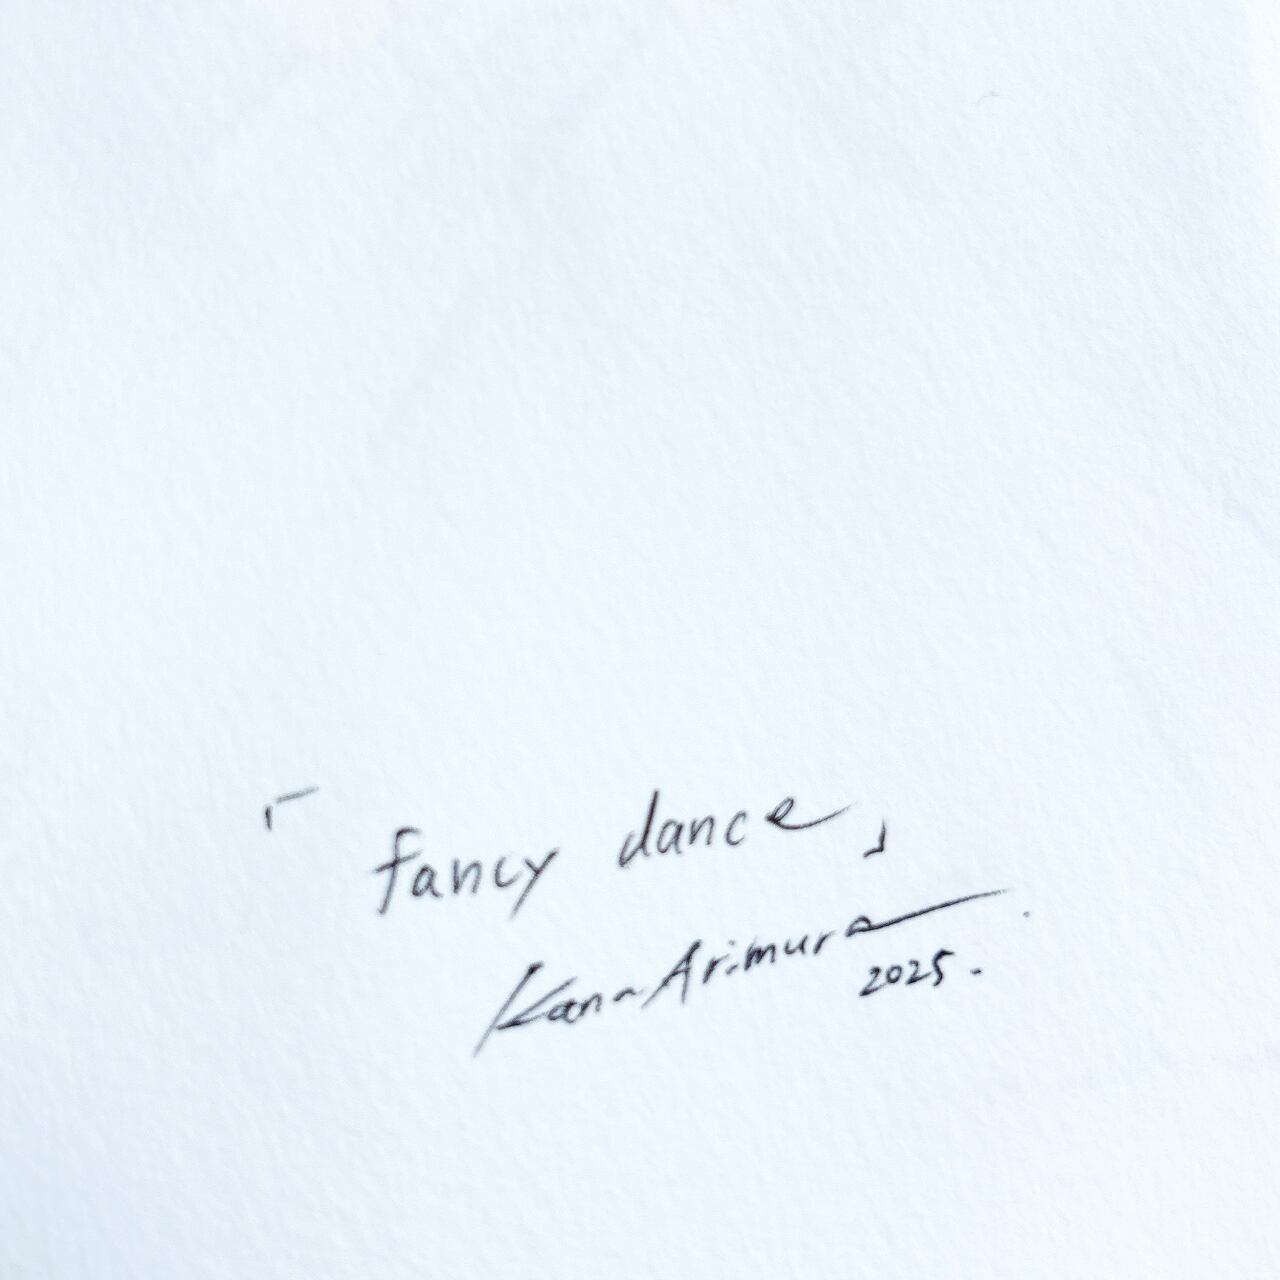 「fancy dance」
Kana Arimura
2025.